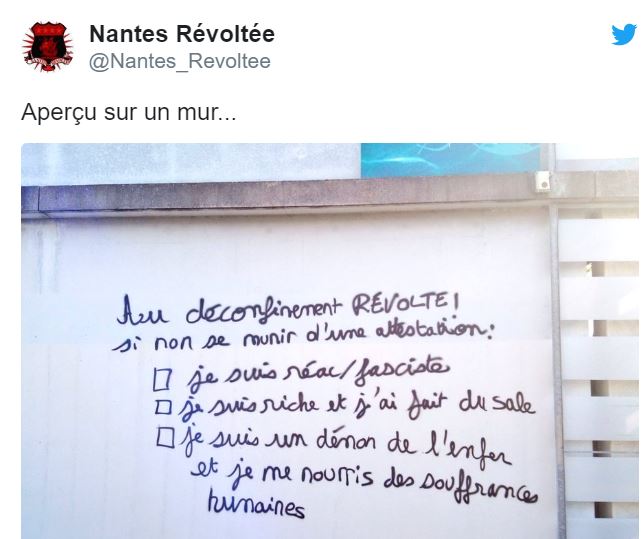 Nantes Révoltée
@Nantes_Revoltee
Aperçu sur un mur...
Au déconfinement RÉVOLTE!
si non se munir d'une attestation:
□ je suis réac/fasciste
□ je suis riche et j'ai fait du sale
□ je suis un démon de l'enfer
et je me nourris des souffrances
humaines